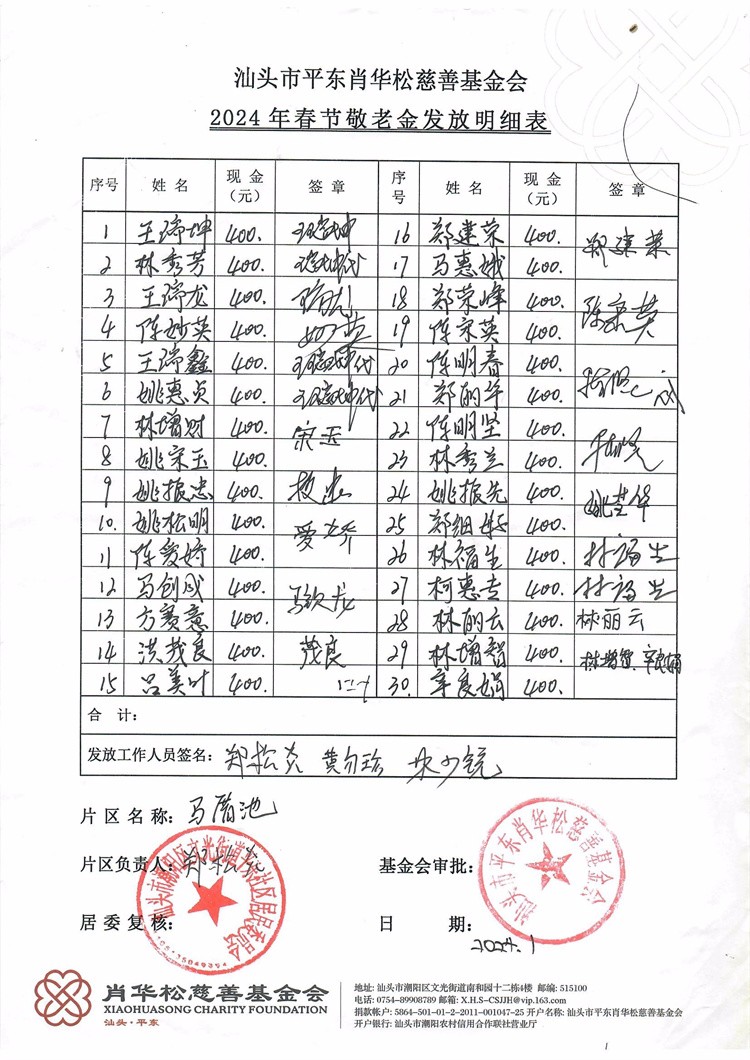 汕头市平东肖华松慈善基金会
2024年春节敬老金发放明细表
序号 姓名 现金(元) 签章 序号 姓名 现金(元) 签章
1 王瑞坤 400. 王瑞坤 16 郑建荣 400. 郑建荣
2 林秀芳 400. 瑞坤代 17 马惠娥 400.
3 王瑞龙 400. 瑞龙 18 郑荣峰 400.
4 陈妙英 400. 妙英 19 陈宋英 400. 陈宋英
5 王瑞鑫 400. 王瑞坤代 20 陈明春 400.
6 姚惠贞 400. 王瑞坤代 21 郑丽华 400.
7 林增财 400. 22 陈明坚 400.
8 姚宋玉 400. 宋玉 23 林秀兰 400.
9 姚振忠 400. 24 姚振先 400.
10. 姚松明 400. 25 郑细 400.
11 陈爱娇 400. 爱娇 26 林福生 400. 林福生
12 马创成 400. 27 柯惠吉 400. 林福生
13 方赛意 400. 28 林丽云 400. 林丽云
14 洪茂良 400. 茂良 29 林增智 400. 林增智
15 吕美叶 400. 30. 辛良娟 400. 辛良娟
合 计:
发放工作人员签名: 郑松炎
片区名称: 马厝池
片区负责人: 郑松炎 基金会审批:
居委复核: 日 期: 2024.1
汕头市潮阳区文光街道平东社区居民委员会
汕头市平东肖华松慈善基金会
肖华松慈善基金会
XIAOHUASONG CHARITY FOUNDATION
汕头·平东
地址: 汕头市潮阳区文光街道南和园十二栋4楼 邮编: 515100
电话: 0754-89908789 邮箱: X.H.S-CSJJH@vip.163.com
捐款帐户: 5864-501-01-2-2011-001047-25 开户名称: 汕头市平东肖华松慈善基金会
开户银行: 汕头市潮阳农村信用合作联社营业厅